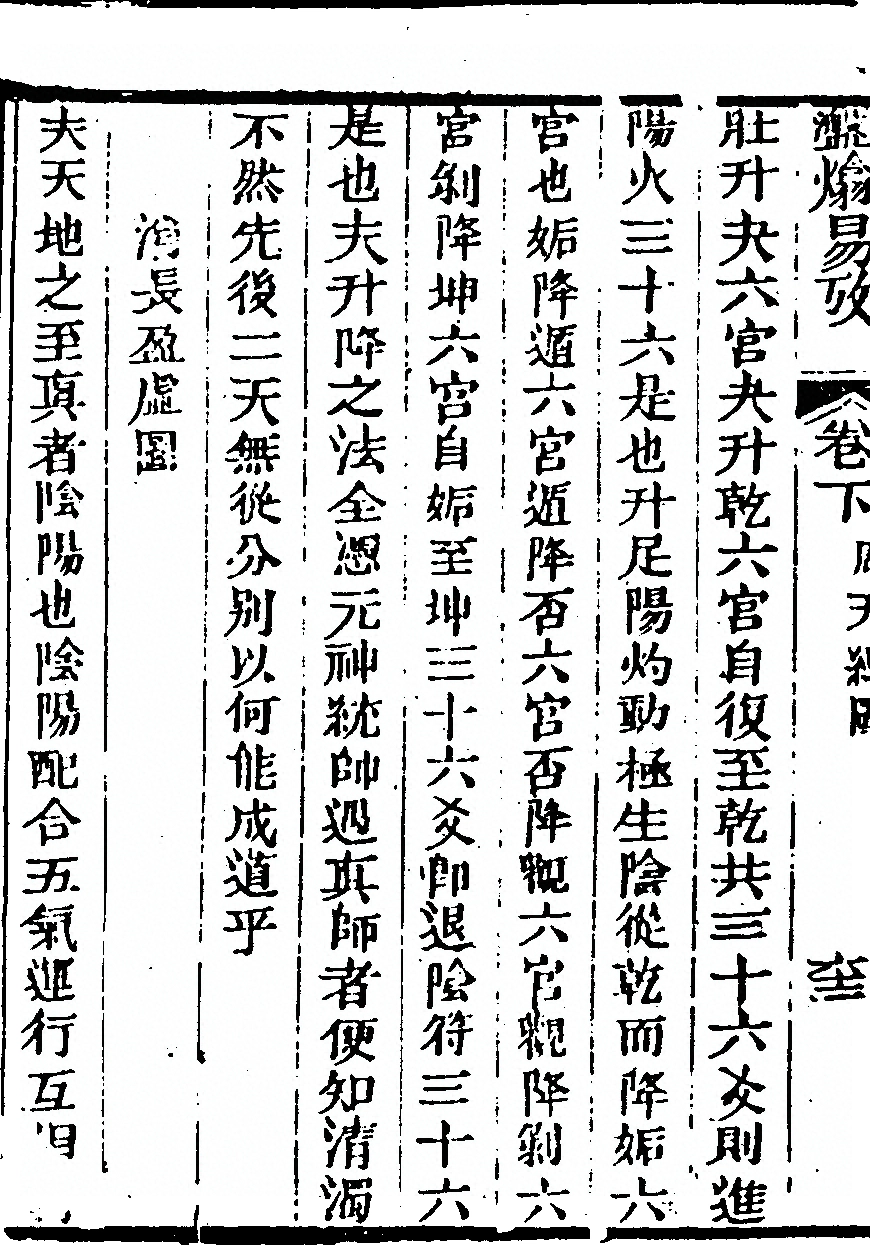 易攷 卷下
壯升夬六宮夬升乾六宮自復至乾共三十六爻則進
陽火三十六是也升足陽灼動極生陰從乾而降姤六
宮也姤降遁六宮遁降否六宮否降觀六宮觀降剝六
宮剝降坤六宮自姤至坤三十六爻即退陰符三十六
是也夫升降之法全憑元神統帥遇真師者便知清濁
不然先後二天無從分別以何能成道乎
消長盈虛圖
夫天地之至真者陰陽也陰陽配合五氣運行互